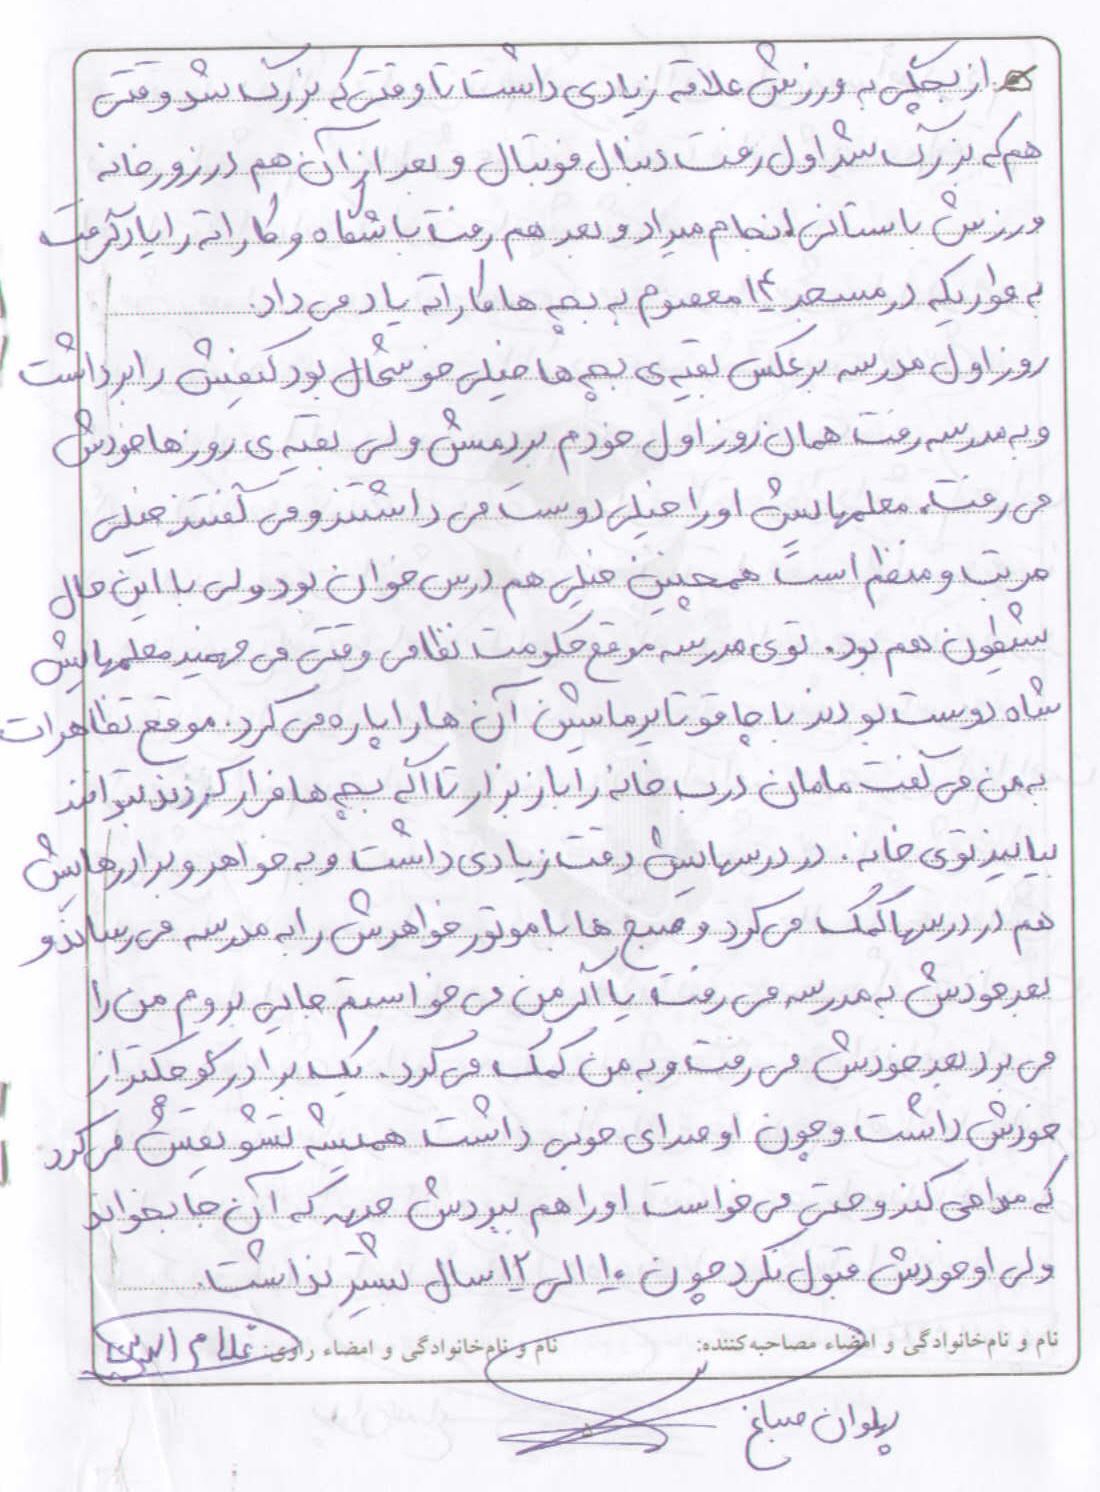 از بچگی به ورزش علاقه زیادی داشت تا وقتی که بزرگ شد وقتی
هم که بزرگ شد اول رفت دنبال فوتبال و بعد از آن هم در زورخانه
ورزش باستانی انجام میداد و بعد هم رفت باشگاه و کاراته را یاد گرفت
به طوریکه در مسجد ۱۴ معصوم به بچه ها کاراته یاد می داد.
روز اول مدرسه برعکس بقیه ی بچه ها خیلی خوشحال بود کیفش را برداشت
و به مدرسه رفت همان روز اول خودم بردمش ولی بقیه ی روزها خودش
می رفت. معلمهایش او را خیلی دوست می داشتند و می گفتند خیلی
مرتب و منظم است همچنین خیلی هم درس خوان بود ولی با این حال
شیطون هم بود. توی مدرسه موقع حکومت نظامی وقتی می فهمید معلمهایش
شاه دوست بودند با چاقو تایر ماشین آن ها را پاره می کرد. موقع تظاهرات
به من می گفت مامان درب خانه را باز بزار تا اگه بچه ها فرار کردند بتوانند
بیایند توی خانه. در درسهایش دقت زیادی داشت و به خواهر و برادرهایش
هم در درسها کمک می کرد و صبح ها با موتور خواهرش را به مدرسه می رساند و
بعد خودش به مدرسه می رفت یا اگر من می خواستم جایی بروم من را
می برد بعد خودش می رفت و به من کمک می کرد. یک برادر کوچکتر از
خودش داشت و چون او صدای خوبی داشت همیشه تشویقش می کرد
که مداحی کند و حتی می خواست او را هم ببردش جبهه که آن جا بخواند
ولی او خودش قبول نکرد چون ۱۰ الی ۱۲ سال بیشتر نداشت.
نام و نام‌خانوادگی و امضاء مصاحبه‌کننده: نام و نام‌خانوادگی و امضاء راوی:
پهلوان صباغ